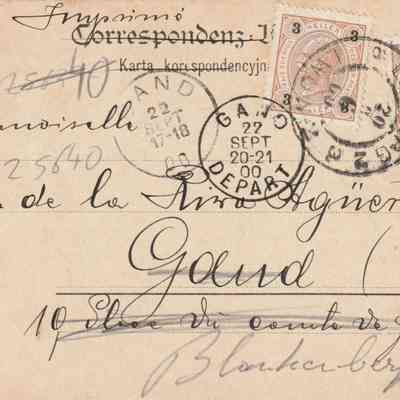 Imprimé
Correspondenz-
Karta korespondencyjn
3 3
3 3
40
AND
22
SEPT
17-18
00
GAND
22
SEPT
20-21
00
DEPART
moiselle
25640
de la Riva Agüer
Gand (
10, Place du comte de
Blankenber